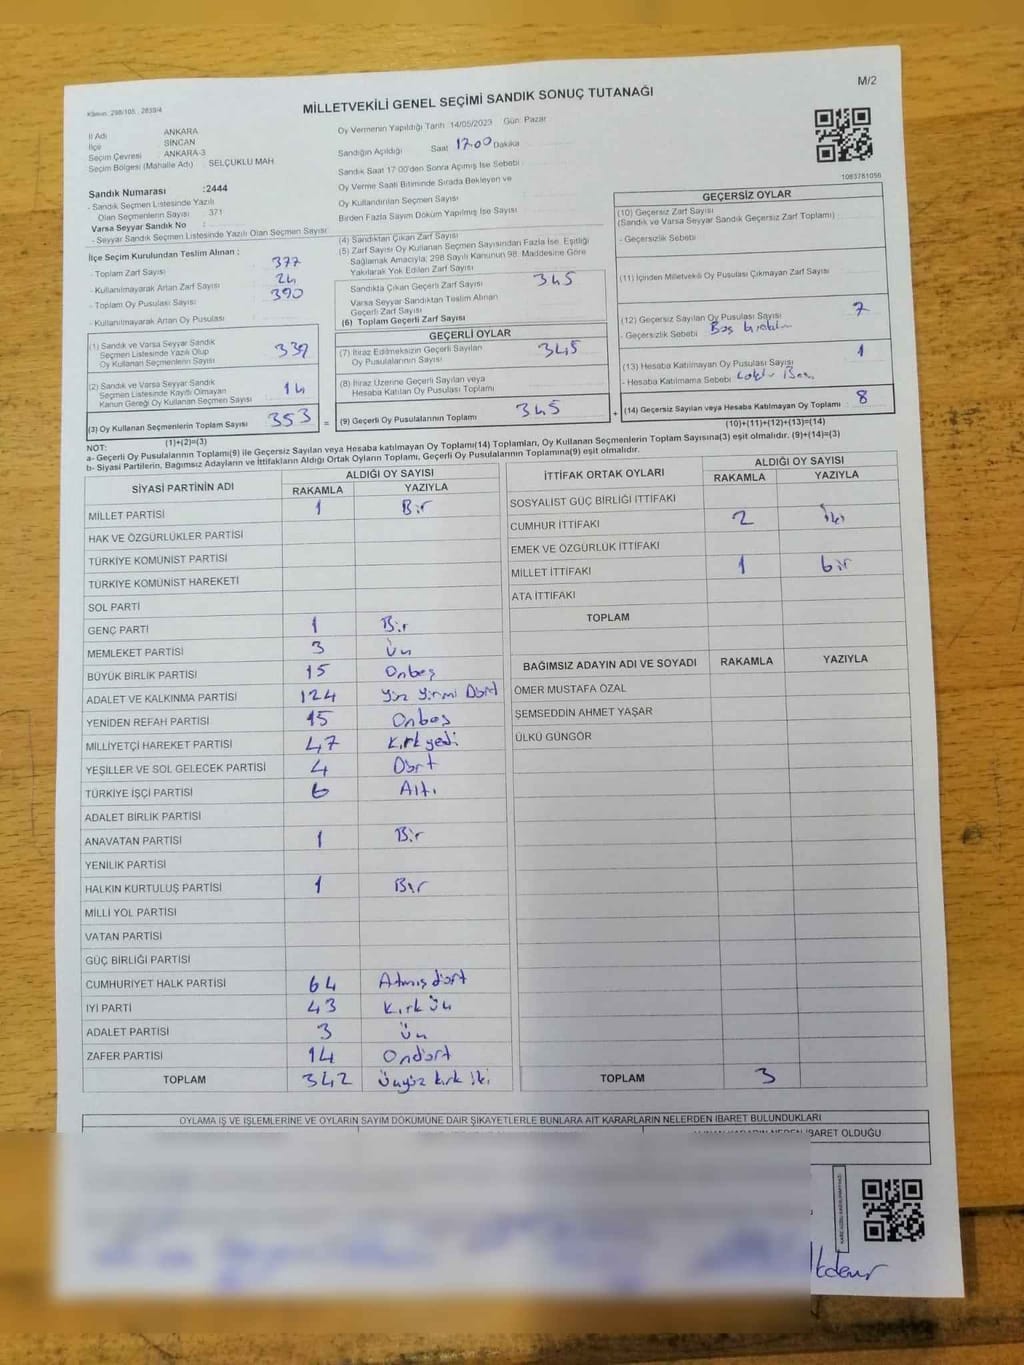 Kanun: 298/105 , 2839/4
MİLLETVEKİLİ GENEL SEÇİMİ SANDIK SONUÇ TUTANAĞI
M/2
İl Adı ANKARA
İlçe SİNCAN
Seçim Çevresi ANKARA-3
Seçim Bölgesi (Mahalle Adı) SELÇUKLU MAH
Sandık Numarası :2444
- Sandık Seçmen Listesinde Yazılı
Olan Seçmenlerin Sayısı 371
Varsa Seyyar Sandık No :
- Seyyar Sandık Seçmen Listesinde Yazılı Olan Seçmen Sayısı
Oy Vermenin Yapıldığı Tarih :14/05/2023 Gün: Pazar
Sandığın Açıldığı Saat 17.00 Dakika
Sandık Saat 17:00'den Sonra Açılmış İse Sebebi
Oy Verme Saati Bitiminde Sırada Bekleyen ve
Oy Kullandırılan Seçmen Sayısı
Birden Fazla Sayım Döküm Yapılmış İse Sayısı
1083781056
İlçe Seçim Kurulundan Teslim Alınan :
- Toplam Zarf Sayısı 377
- Kullanılmayarak Artan Zarf Sayısı 24
- Toplam Oy Pusulası Sayısı 390
- Kullanılmayarak Artan Oy Pusulası
(1) Sandık ve Varsa Seyyar Sandık
Seçmen Listesinde Yazılı Olup
Oy Kullanan Seçmenlerin Sayısı 339
(2) Sandık ve Varsa Seyyar Sandık
Seçmen Listesinde Kayıtlı Olmayan
Kanun Gereği Oy Kullanan Seçmen Sayısı 14
(3) Oy Kullanan Seçmenlerin Toplam Sayısı 353
(1)+(2)=(3)
(4) Sandıktan Çıkan Zarf Sayısı
(5) Zarf Sayısı Oy Kullanan Seçmen Sayısından Fazla İse, Eşitliği
Sağlamak Amacıyla; 298 Sayılı Kanunun 98. Maddesine Göre
Yakılarak Yok Edilen Zarf Sayısı
Sandıkta Çıkan Geçerli Zarf Sayısı 345
Varsa Seyyar Sandıktan Teslim Alınan
Geçerli Zarf Sayısı
(6) Toplam Geçerli Zarf Sayısı
GEÇERLİ OYLAR
(7) İtiraz Edilmeksizin Geçerli Sayılan
Oy Pusulalarının Sayısı 345
(8) İtiraz Üzerine Geçerli Sayılan veya
Hesaba Katılan Oy Pusulası Toplamı
= (9) Geçerli Oy Pusulalarının Toplamı 345
GEÇERSİZ OYLAR
(10) Geçersiz Zarf Sayısı
(Sandık ve Varsa Seyyar Sandık Geçersiz Zarf Toplamı)
- Geçersizlik Sebebi
(11) İçinden Milletvekili Oy Pusulası Çıkmayan Zarf Sayısı
(12) Geçersiz Sayılan Oy Pusulası Sayısı 7
- Geçersizlik Sebebi Boş
(13) Hesaba Katılmayan Oy Pusulası Sayısı 1
- Hesaba Katılmama Sebebi
+ (14) Geçersiz Sayılan veya Hesaba Katılmayan Oy Toplamı 8
(10)+(11)+(12)+(13)=(14)
NOT:
a- Geçerli Oy Pusulalarının Toplamı(9) ile Geçersiz Sayılan veya Hesaba katılmayan Oy Toplamı(14) Toplamları, Oy Kullanan Seçmenlerin Toplam Sayısına(3) eşit olmalıdır. (9)+(14)=(3)
b- Siyasi Partilerin, Bağımsız Adayların ve İttifakların Aldığı Ortak Oyların Toplamı, Geçerli Oy Pusulalarının Toplamına(9) eşit olmalıdır.
SİYASİ PARTİNİN ADI ALDIĞI OY SAYISI
RAKAMLA YAZIYLA
MİLLET PARTİSİ 1 Bir
HAK VE ÖZGÜRLÜKLER PARTİSİ
TÜRKİYE KOMÜNİST PARTİSİ
TÜRKİYE KOMÜNİST HAREKETİ
SOL PARTİ
GENÇ PARTİ 1 Bir
MEMLEKET PARTİSİ 3 Üç
BÜYÜK BİRLİK PARTİSİ 15 Onbeş
ADALET VE KALKINMA PARTİSİ 124 Yüz Yirmi Dört
YENİDEN REFAH PARTİSİ 15 Onbeş
MİLLİYETÇİ HAREKET PARTİSİ 47 Kırkyedi
YEŞİLLER VE SOL GELECEK PARTİSİ 4 Dört
TÜRKİYE İŞÇİ PARTİSİ 6 Altı
ADALET BİRLİK PARTİSİ
ANAVATAN PARTİSİ 1 Bir
YENİLİK PARTİSİ
HALKIN KURTULUŞ PARTİSİ 1 Bir
MİLLİ YOL PARTİSİ
VATAN PARTİSİ
GÜÇ BİRLİĞİ PARTİSİ
CUMHURİYET HALK PARTİSİ 64 Atmışdört
İYİ PARTİ 43 Kırk Üç
ADALET PARTİSİ 3 Üç
ZAFER PARTİSİ 14 Ondört
TOPLAM 342 Üçyüz kırk iki
İTTİFAK ORTAK OYLARI ALDIĞI OY SAYISI
RAKAMLA YAZIYLA
SOSYALİST GÜÇ BİRLİĞİ İTTİFAKI
CUMHUR İTTİFAKI 2 İki
EMEK VE ÖZGÜRLÜK İTTİFAKI
MİLLET İTTİFAKI 1 bir
ATA İTTİFAKI
TOPLAM
BAĞIMSIZ ADAYIN ADI VE SOYADI RAKAMLA YAZIYLA
ÖMER MUSTAFA ÖZAL
ŞEMSEDDİN AHMET YAŞAR
ÜLKÜ GÜNGÖR
TOPLAM 3
OYLAMA İŞ VE İŞLEMLERİNE VE OYLARIN SAYIM DÖKÜMÜNE DAİR ŞİKAYETLERLE BUNLARA AİT KARARLARIN NELERDEN İBARET BULUNDUKLARI
İBARET OLDUĞU